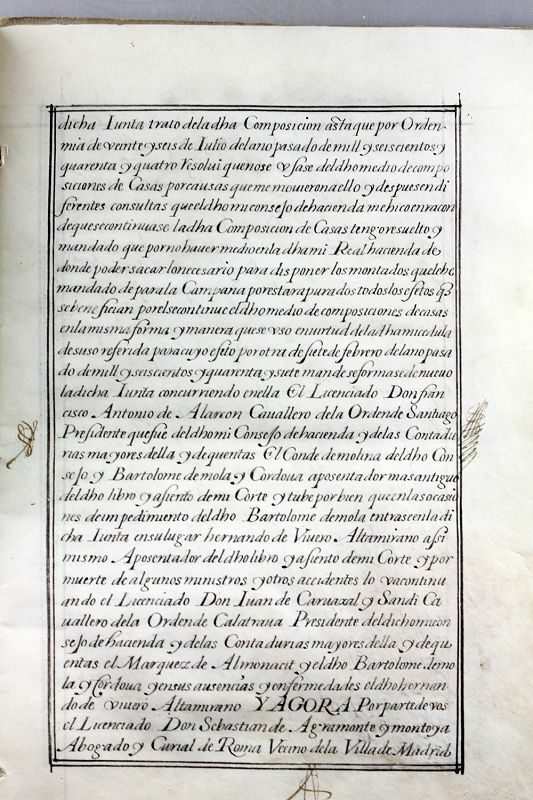 dicha Iunta trato de la dha Composicion asta que por Orden
mia de veinte y seis de Iulio del ano pasado de mill y seiscientos y
quarenta y quatro Resolui que no se vsase del dho medio de compo
siciones de Casas por causas que me mouieron a ello y despues en di
ferentes consultas que el dho mi consejo de hacienda me hico en racon
de que se continuase la dha Composicion de Casas tengo resuelto y
mandado que por no hauer medio en la dha mi Real hacienda de
donde poder sacar lo necesario para disponer los montados que le he
mandado de para la Campana por estar apurados todos los efetos q̃
se benefician por el se continue el dho medio de composiciones de casas
en la misma forma y manera que se vso en uirtud de la dha mi cedula
de suso referida para cuyo efeto por otra de siete de febrero del ano pasa
do de mill y seiscientos y quarenta y siete mande se formase de nueuo
la dicha Iunta concurriendo en ella El Licenciado Don fran
cisco Antonio de Alarcon Cauallero de la Orden de Santiago
Presidente que fue del dho mi Consejo de hacienda y de las Contadu
rias mayores della y de quentas El Conde de molina del dho Con
sejo y Bartolome de mola y Cordoua aposentador mas antiguo
del dho libro y asiento de mi Corte y tube por bien que en las ocasio
nes de impedimento del dho Bartolome de mola entrase en la di
cha Iunta en su lugar hernando de Viuero Altamirano assi
mismo Aposentador del dho libro y asiento de mi Corte y por
muerte de algunos ministros y otros accidentes lo va continu
ando el Licenciado Don Iuan de Caruaxal y Sandi Ca
uallero de la Orden de Calatraua Presidente del dicho mi con
sejo de hacienda y de las Contadurias mayores della y de qu
entas el Marquez de Almonacit y el dho Bartolome de mo
la y Cordoua y en sus ausencias y enfermedades el dho hernan
do de viuero Altamirano Y AGORA Por parte de vos
el Licenciado Don Sebastian de Agramonte y montoya
Abogado y Curial de Roma Vecino de la Villa de Madrid